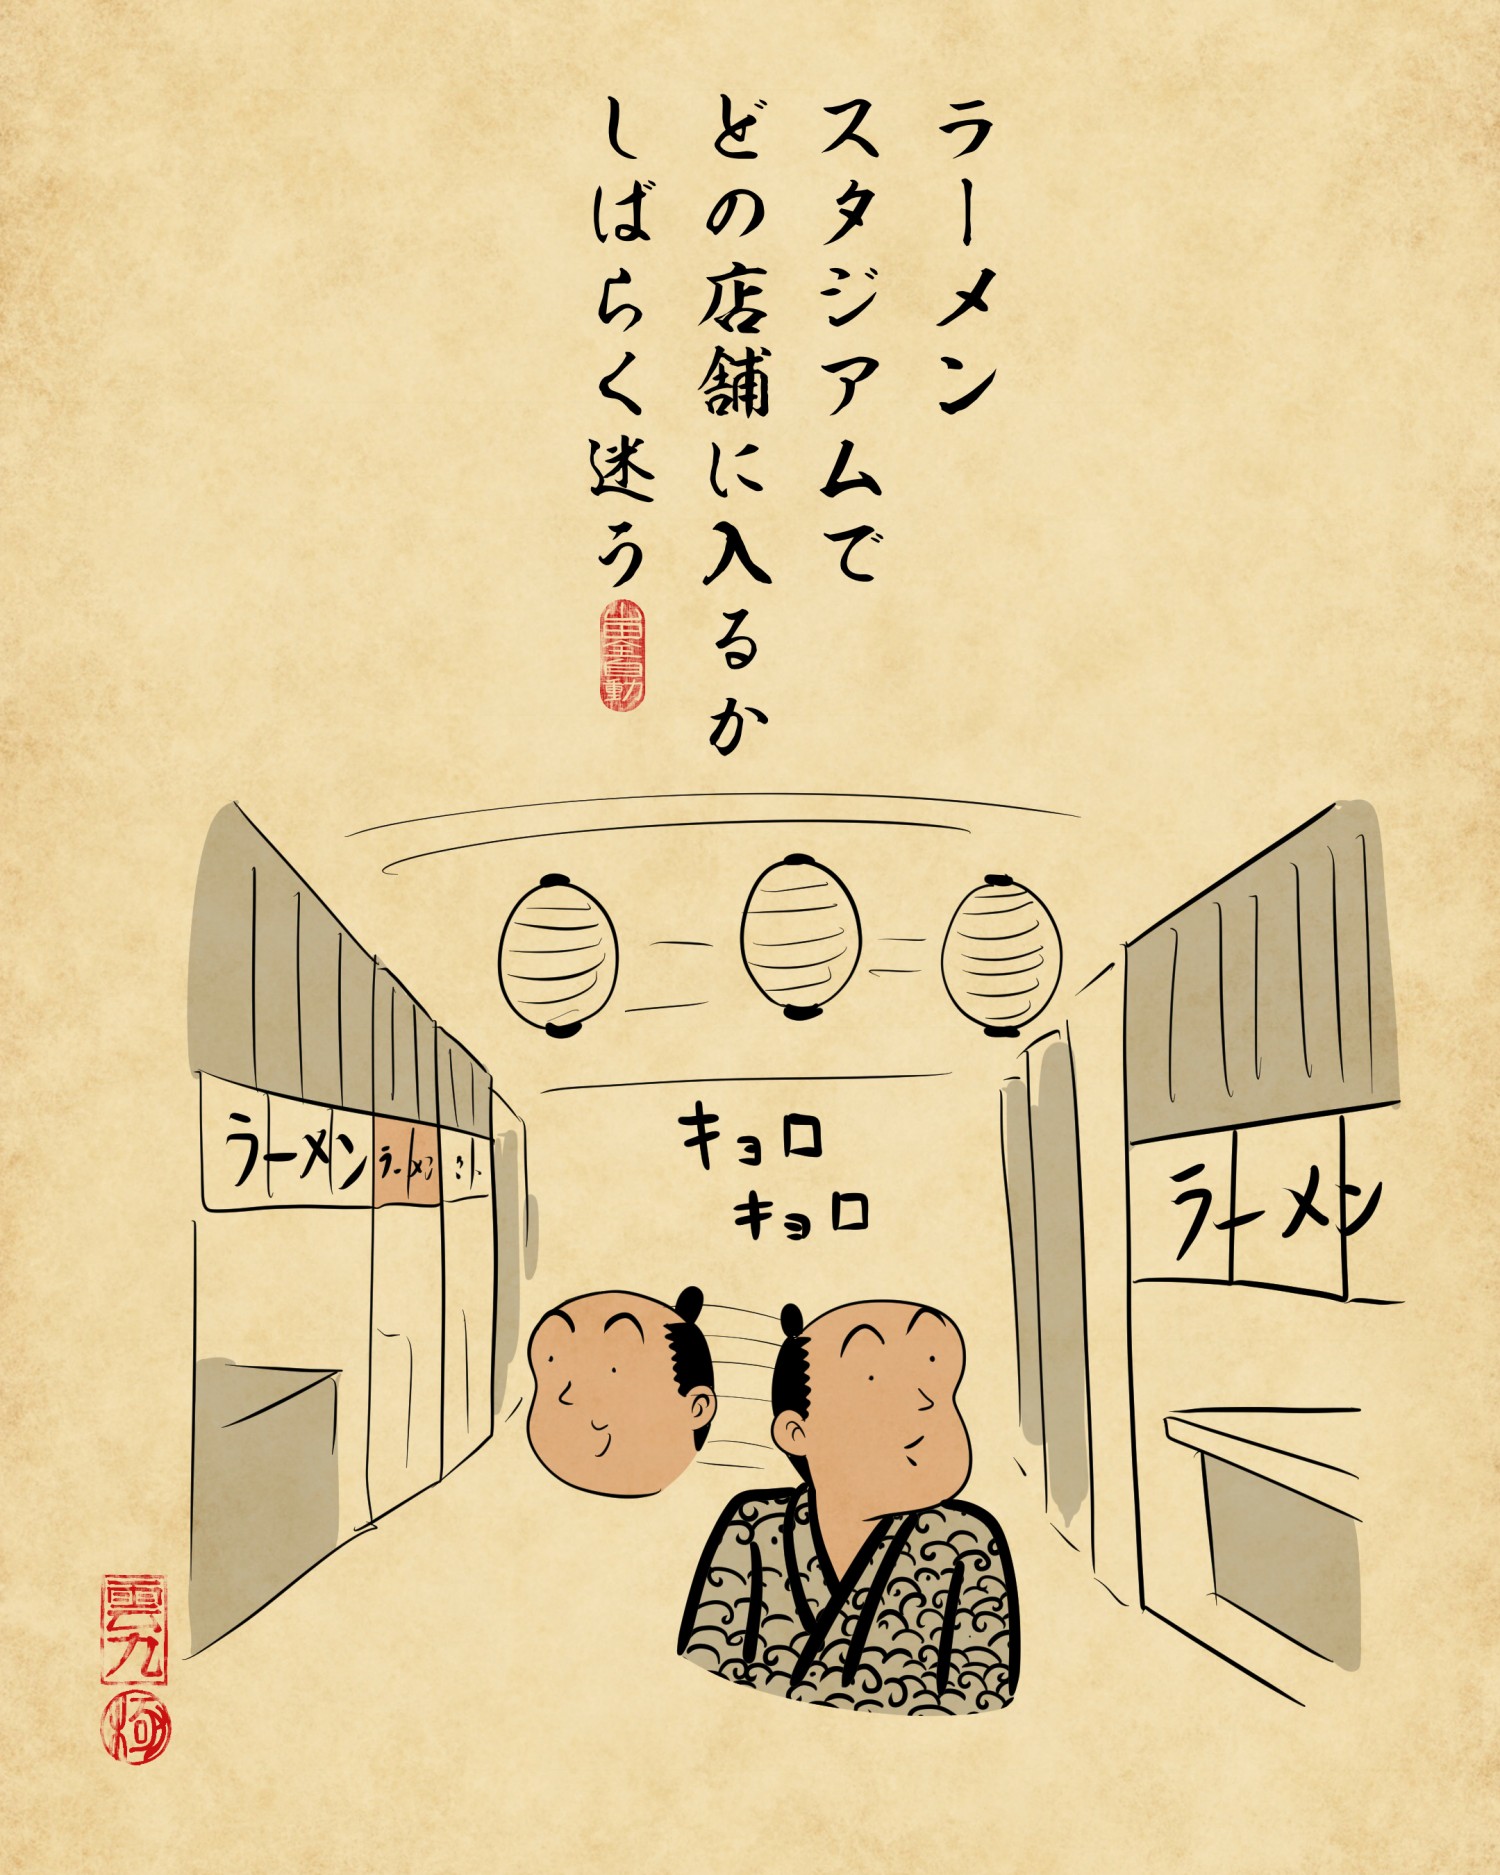 ラーメン
スタジアムで
どの店舗に入るか
しばらく迷う
ラーメン
ラーメン
ラーメン
キョロ
キョロ
雲丸
極